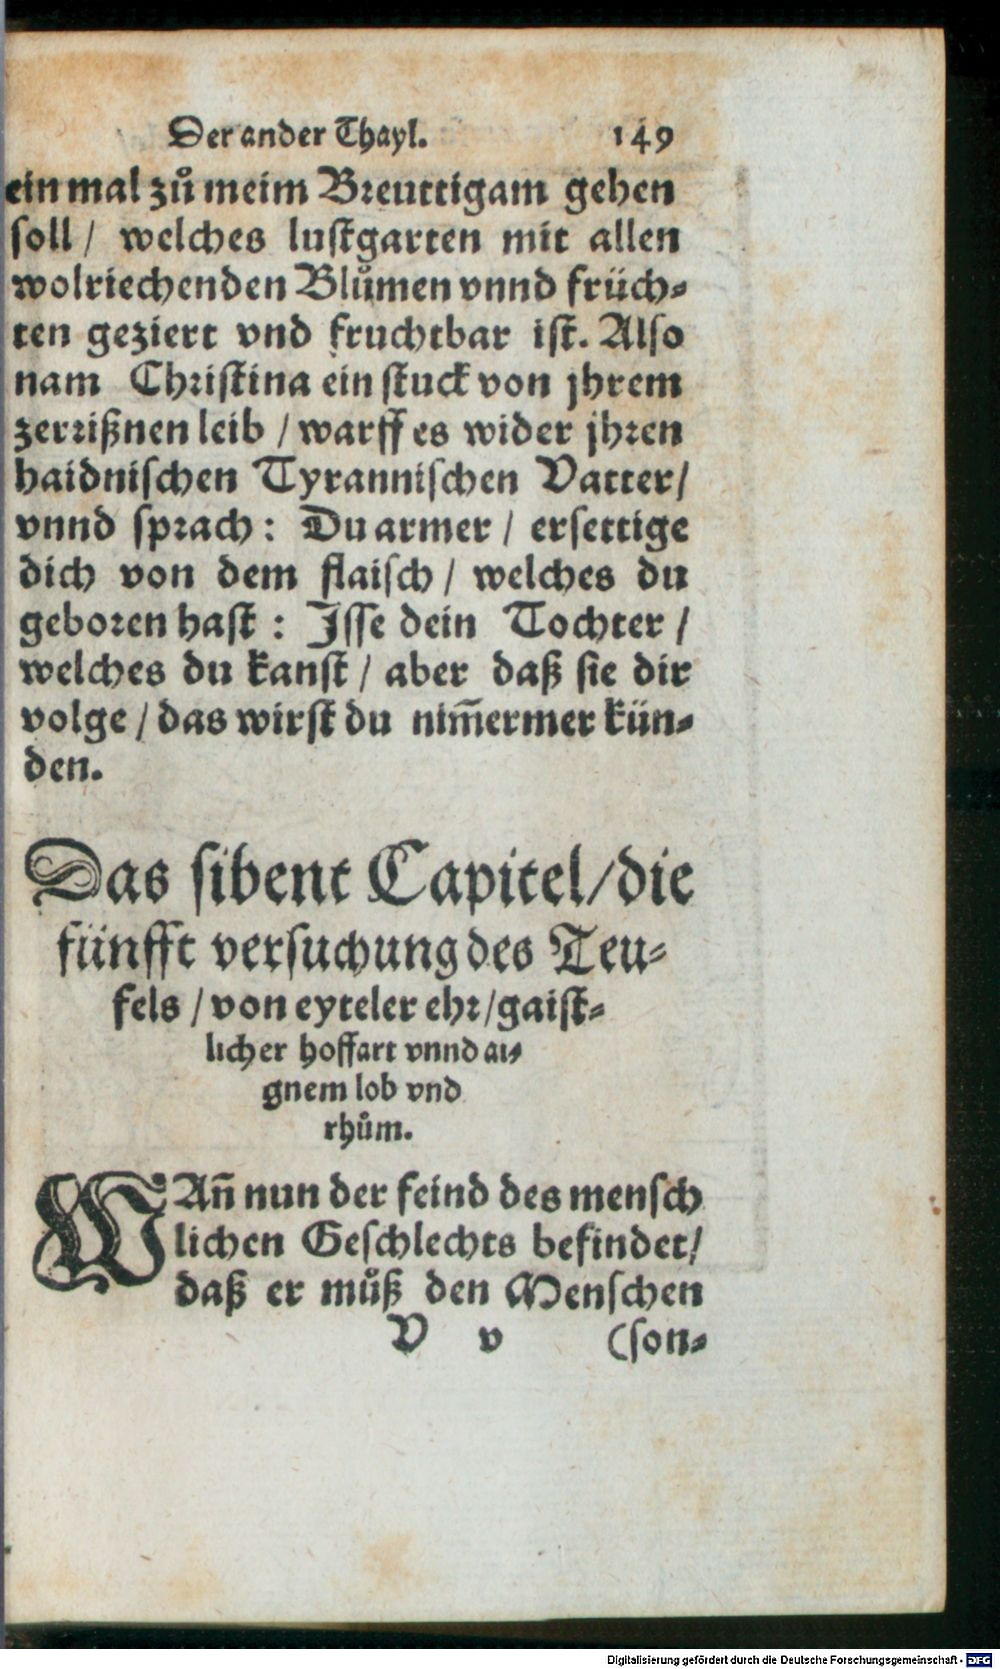 Der ander Thayl. 149
ein mal zů meim Breuttigam gehen
soll / welches lustgarten mit allen
wolriechenden Blůmen vnnd früch-
ten geziert vnd fruchtbar ist. Also
nam Christina ein stuck von jhrem
zerrißnen leib / warff es wider jhren
haidnischen Tyrannischen Vatter /
vnnd sprach : Du armer / ersettige
dich von dem flaisch / welches du
geboren hast : Isse dein Tochter /
welches du kanst / aber daß sie dir
volge / das wirst du nim̄ermer kün-
den.
Das sibent Capitel / die
fünfft versuchung des Teu-
fels / von eyteler ehr / gaist-
licher hoffart vnnd ai-
gnem lob vnd
rhům.
WAn̄ nun der feind des mensch
lichen Geschlechts befindet /
daß er můß den Menschen
V v (son-
Digitalisierung gefördert durch die Deutsche Forschungsgemeinschaft - DFG